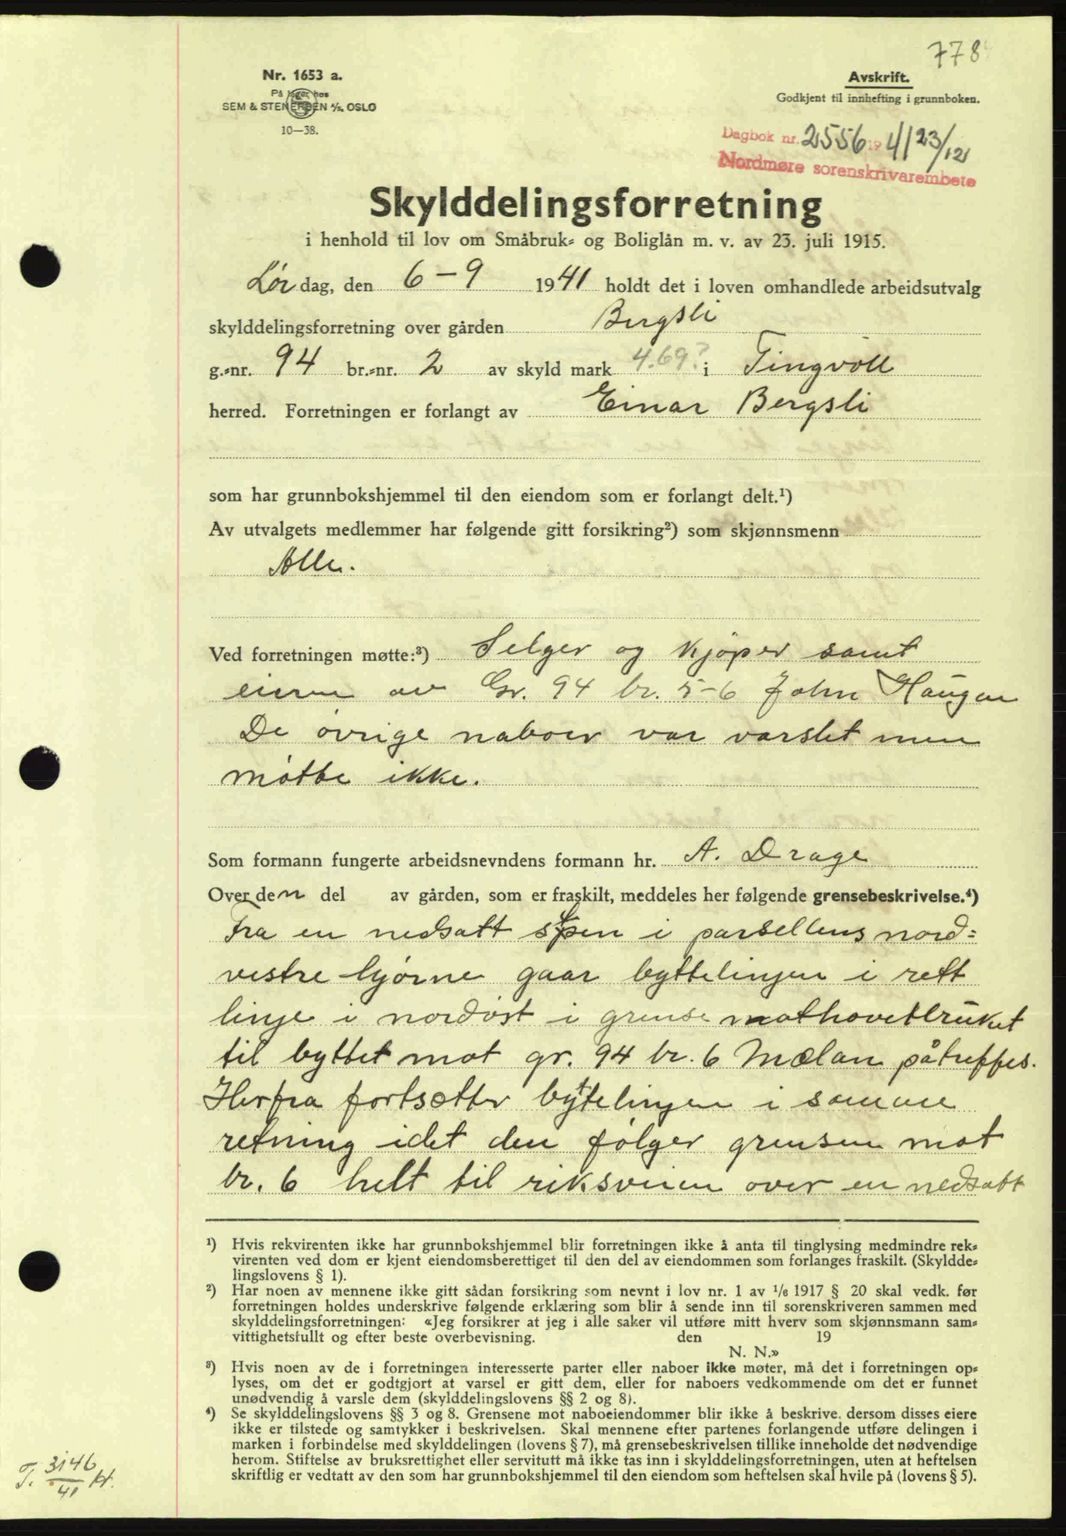 778
Nr. 1653 a.
På lager hos
SEM & STENERSEN A/S, OSLO
10—38.
Avskrift.
Godkjent til innhefting i grunnboken.
Dagbok nr. 2556 1941 23/12
Nordmøre sorenskrivarembete
Skylddelingsforretning
i henhold til lov om Småbruk- og Boliglån m. v. av 23. juli 1915.
Lør dag, den 6-9 1941 holdt det i loven omhandlede arbeidsutvalg
skylddelingsforretning over gården Bergsli
g.-nr. 94 br.-nr. 2 av skyld mark 4.69? i Tingvoll
herred. Forretningen er forlangt av Einar Bergsli
som har grunnbokshjemmel til den eiendom som er forlangt delt.¹)
Av utvalgets medlemmer har følgende gitt forsikring²) som skjønnsmenn
Alle.
Ved forretningen møtte:³) Selger og kjøper samt
eieren av Gr. 94 br. 5-6 John Haugan
De øvrige naboer var varslet men
møtte ikke.
Som formann fungerte arbeidsnevndens formann hr. A. Drage
Over den del av gården, som er fraskilt, meddeles her følgende grensebeskrivelse.⁴)
Fra en nedsatt sten i parsellens nord-
vestre hjørne gaar byttelinjen i rett
linje i nordøst i grense mot hovetbruket
til byttet mot gr. 94 br. 6 Mælan påtreffes.
Herfra fortsetter byttelinjen i samme
retning idet den følger grensen mot
br. 6 helt til riksveien over en nedsatt
¹) Hvis rekvirenten ikke har grunnbokshjemmel blir forretningen ikke å anta til tinglysing medmindre rek-
virenten ved dom er kjent eiendomsberettiget til den del av eiendommen som forlanges fraskilt. (Skyldde-
lingslovens § 1).
²) Har noen av mennene ikke gitt sådan forsikring som nevnt i lov nr. 1 av 1/6 1917 § 20 skal vedk. før
forretningen holdes underskrive følgende erklæring som blir å sende inn til sorenskriveren sammen med
skylddelingsforretningen: «Jeg forsikrer at jeg i alle saker vil utføre mitt hverv som skjønnsmann sam-
vittighetsfullt og efter beste overbevisning. den 19
N. N.»
³) Hvis noen av de i forretningen interesserte parter eller naboer ikke møter, må det i forretningen op-
lyses, om det er godtgjort at varsel er gitt dem, eller for naboers vedkommende om det er funnet
unødvendig å varsle dem (skylddelingslovens §§ 2 og 8).
⁴) Se skylddelingslovens §§ 3 og 8. Grensene mot naboeiendommer blir ikke å beskrive, dersom disses eiere
ikke er tilstede og samtykker i beskrivelsen. Skal mennene efter partenes forlangende utføre delingen i
marken i forbindelse med skylddelingen (lovens § 7), må grensebeskrivelsen tillike inneholde det nødvendige
herom. Stiftelse av bruksrettighet eller servitutt må ikke tas inn i skylddelingsforretningen, uten at heftelsen
skriftlig er vedtatt av den som har grunnbokshjemmel til den eiendom som heftelsen skal hvile på (lovens § 5).
T. 3146/41